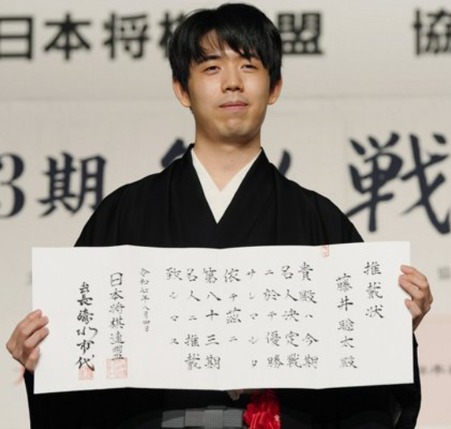 日本将棋連盟 協
3期 戦
推戴状
藤井聡太殿
貴殿ハ今期
名人決定戦
ニ於テ優勝
サレマシタ
依テ茲ニ
第八十三期
名人ニ推戴
致シマス
令和七年八月四日
日本将棋連盟
会長 清水市代